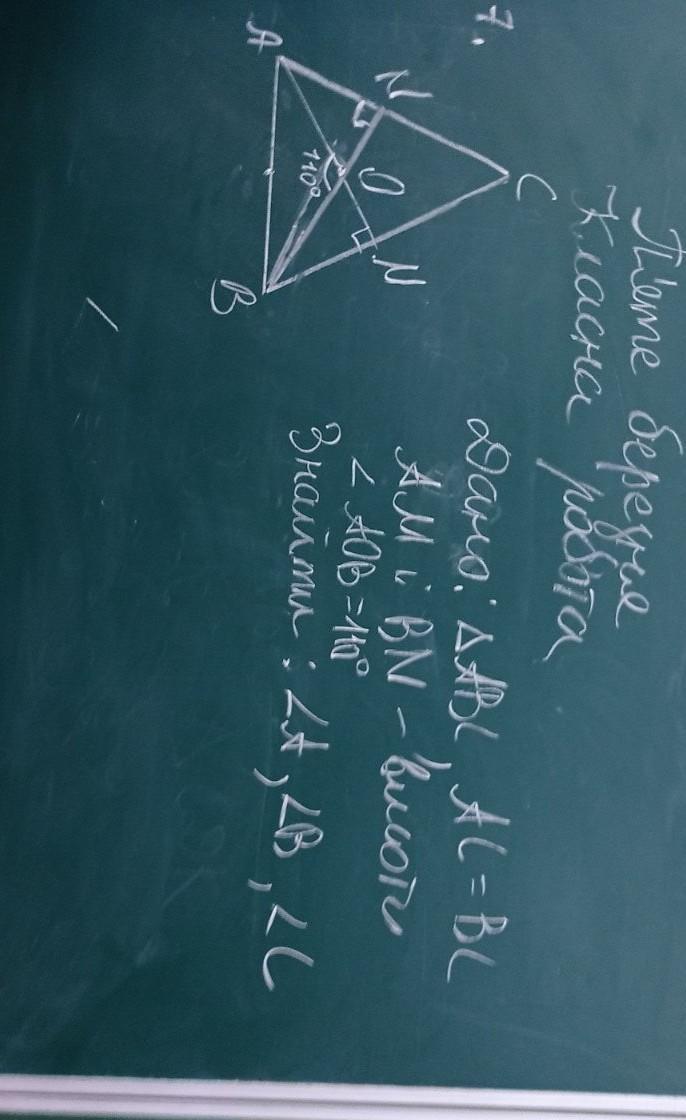 П'яте березня
Класна робота
7.
C
N
O
M
110°
A
B
Дано: △ABC, AC = BC
AM і BN - висоти
∠ AOB = 110°
Знайти: ∠A, ∠B, ∠C